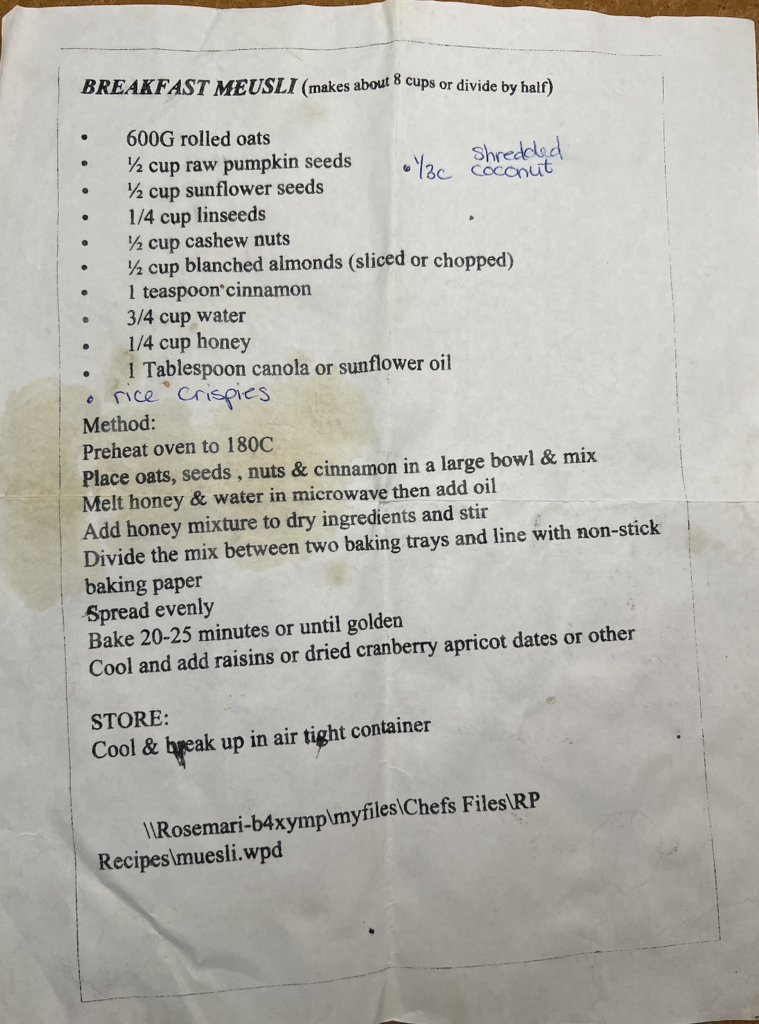 BREAKFAST MEUSLI (makes about 8 cups or divide by half)
• 600G rolled oats
• ½ cup raw pumpkin seeds
• 1/3c shredded coconut
• ½ cup sunflower seeds
• 1/4 cup linseeds
• ½ cup cashew nuts
• ½ cup blanched almonds (sliced or chopped)
• 1 teaspoon cinnamon
• 3/4 cup water
• 1/4 cup honey
• 1 Tablespoon canola or sunflower oil
• rice crispies
Method:
Preheat oven to 180C
Place oats, seeds , nuts & cinnamon in a large bowl & mix
Melt honey & water in microwave then add oil
Add honey mixture to dry ingredients and stir
Divide the mix between two baking trays and line with non-stick
baking paper
Spread evenly
Bake 20-25 minutes or until golden
Cool and add raisins or dried cranberry apricot dates or other
STORE:
Cool & break up in air tight container
\\Rosemari-b4xymp\myfiles\Chefs Files\RP
Recipes\muesli.wpd